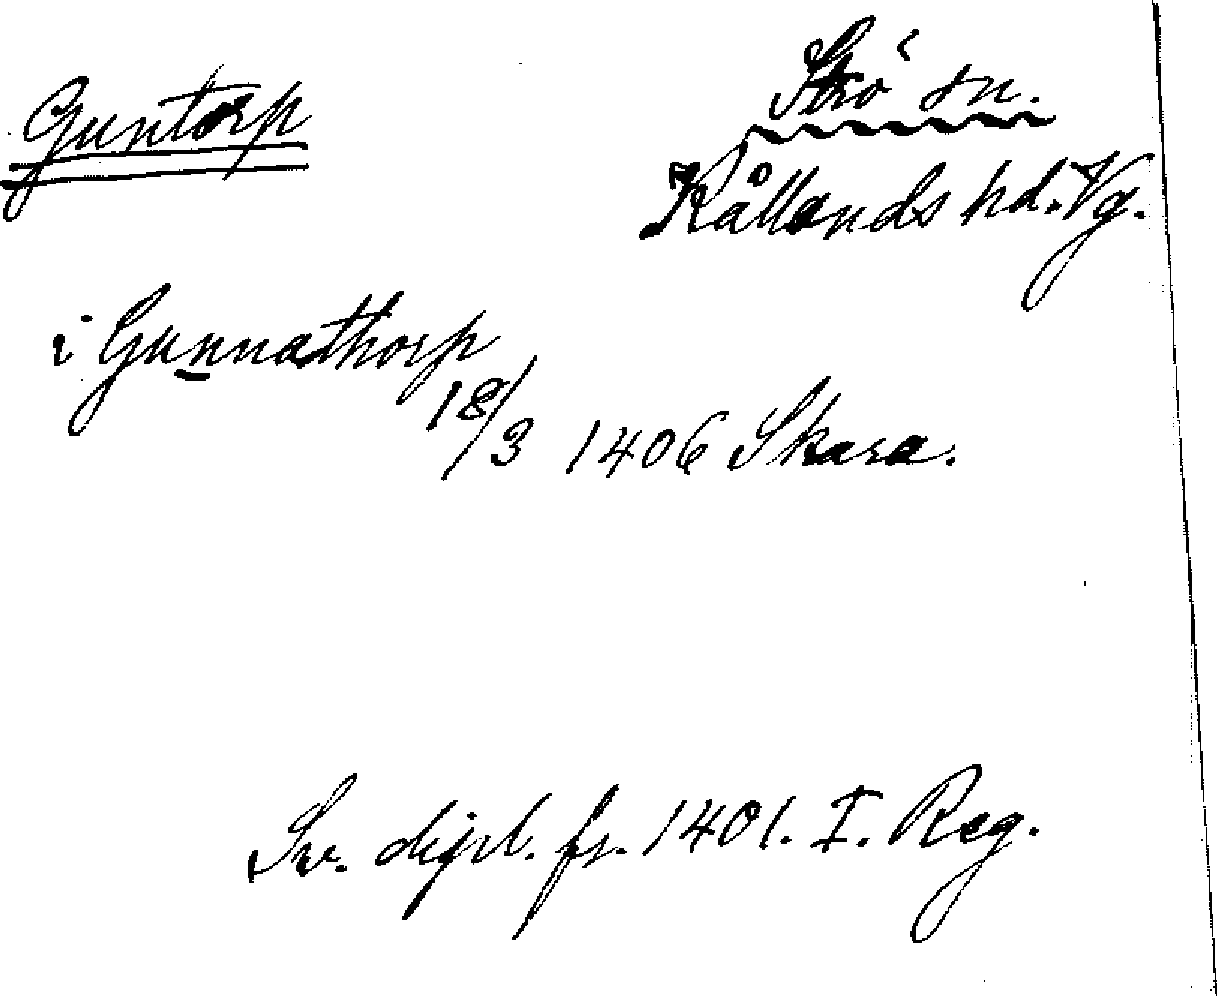 Guntorp
Strö sn.
Kållands hd. Vg.
i Gunnathorp
18/3 1406 Skara.
Sv. dipl. fr. 1401. I. Reg.